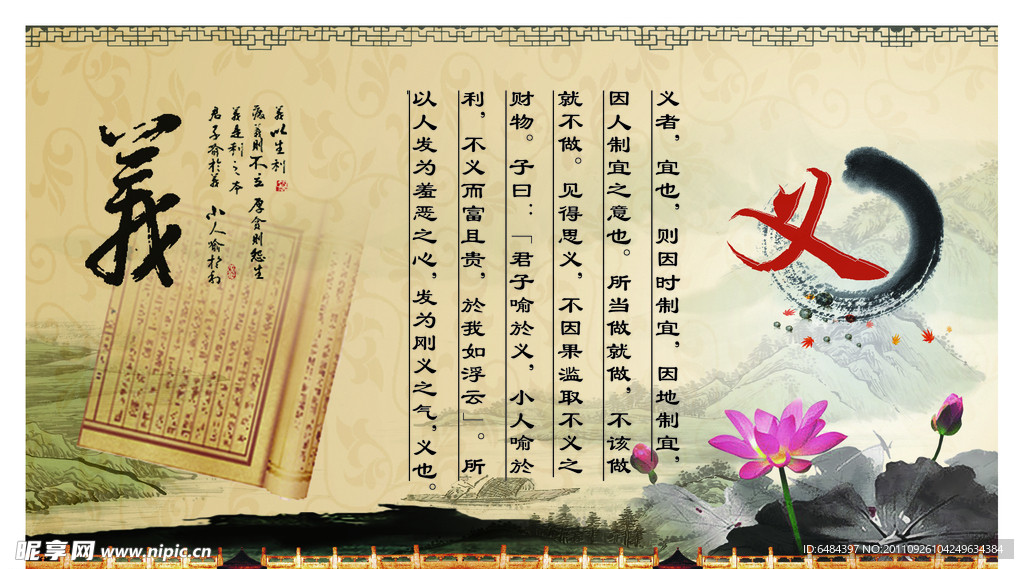 义
义者，宜也，则因时制宜，因地制宜，
因人制宜之意也。所当做就做，不该做
就不做。见得思义，不因果滥取不义之
财物。子曰：「君子喻於义，小人喻於
利，不义而富且贵，於我如浮云」。所
以人发为羞恶之心，发为刚义之气，义也。
義以生利
廢義則不立 厚貪則怨生
義 利之本
君子喻於義 小人喻於利
義
昵享网 www.nipic.cn
ID:6484397 NO:20110926104249634384